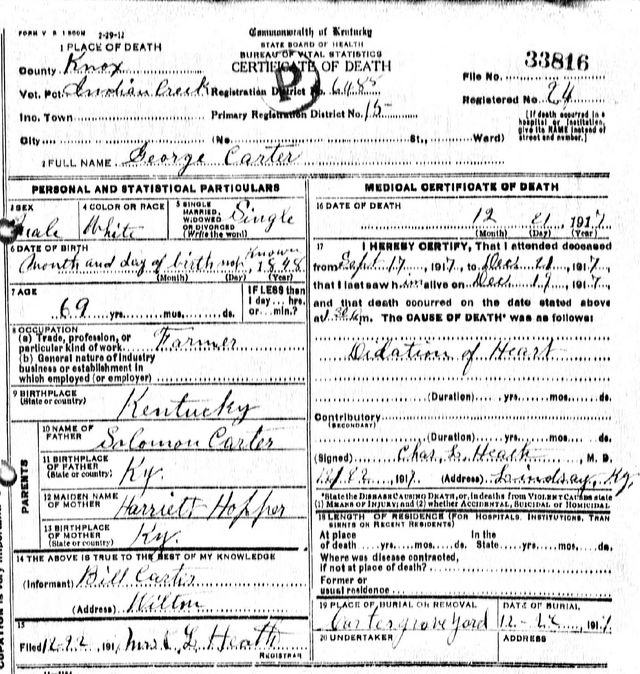 FORM V S 1 500M 2-29-12
Commonwealth of Kentucky
STATE BOARD OF HEALTH
BUREAU OF VITAL STATISTICS
CERTIFICATE OF DEATH
P
33816
1 PLACE OF DEATH
County Knox
Vot. Pct. Indian Creek Registration District No. 6485
Inc. Town Primary Registration District No. 15
File No.
Registered No. 24
City (No. St., Ward)
[If death occurred in a hospital or institution, give its NAME instead of street and number.]
2 FULL NAME George Carter
PERSONAL AND STATISTICAL PARTICULARS
3 SEX Male
4 COLOR OR RACE White
5 SINGLE, MARRIED, WIDOWED OR DIVORCED (Write the word) Single
6 DATE OF BIRTH
Month and day of birth not Known, 1848
(Month) (Day) (Year)
7 AGE
69 yrs. mos. ds.
IF LESS than 1 day... hrs. or... min.?
8 OCCUPATION
(a) Trade, profession, or particular kind of work Farmer
(b) General nature of industry business or establishment in which employed (or employer)
9 BIRTHPLACE (State or country) Kentucky
PARENTS
10 NAME OF FATHER Solomon Carter
11 BIRTHPLACE OF FATHER (State or country) Ky.
12 MAIDEN NAME OF MOTHER Harriett Hopper
13 BIRTHPLACE OF MOTHER (State or country) Ky.
14 THE ABOVE IS TRUE TO THE BEST OF MY KNOWLEDGE
(Informant) Bill Carter
(Address) Wilton
15
Filed 12-22, 191 Mrs C. L. Heath
REGISTRAR
MEDICAL CERTIFICATE OF DEATH
16 DATE OF DEATH
12 21, 1917
(Month) (Day) (Year)
17 I HEREBY CERTIFY, That I attended deceased
from Sept 17, 1917, to Dec 21, 1917,
that I last saw him alive on Dec 17, 1917,
and that death occurred on the date stated above
at m. The CAUSE OF DEATH* was as follows:
Didation of Heart
(Duration) yrs. mos. ds.
Contributory
(SECONDARY)
(Duration) yrs. mos. ds.
(Signed) Chas. L. Heath, M. D.
12/22, 1917. (Address) Lindsay, Ky.
*State the DISEASE CAUSING DEATH, or, in deaths from VIOLENT CAUSES state
(1) MEANS OF INJURY; and (2) whether ACCIDENTAL, SUICIDAL or HOMICIDAL
18 LENGTH OF RESIDENCE (FOR HOSPITALS, INSTITUTIONS, TRAN
SIENTS OR RECENT RESIDENTS)
At place of death yrs. mos. ds. In the State yrs. mos. ds.
Where was disease contracted,
if not at place of death?
Former or
usual residence
19 PLACE OF BURIAL OR REMOVAL
Cartergrove Yard
DATE OF BURIAL
12-22, 1917
20 UNDERTAKER
ADDRESS